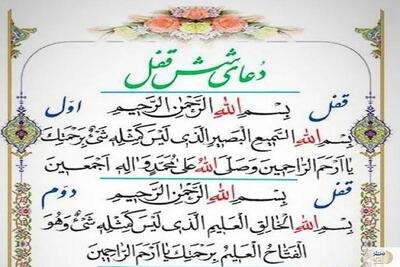 دعای شش قفل
قفل اوّل
بِسْمِ اللهِ الرَّحْمٰنِ الرَّحیمِ
بِسْمِ اللهِ السَّمیعِ الْبَصیرِ الَّذی لَیْسَ کَمِثْلِهِ شَیْءٌ بِرَحْمَتِكَ
یا اَرْحَمَ الرّاحِمینَ وَصَلَّی اللهُ عَلی مُحَمَّدٍ وَ الِهِ اَجْمَعینَ
قفل دوّم
بِسْمِ اللهِ الرَّحْمٰنِ الرَّحیمِ
بِسْمِ اللهِ الْخالِقِ الْعَلیمِ الَّذی لَیْسَ کَمِثْلِهِ شَیْءٌ وَهُوَ
الْفَتّاحُ الْعَلیمُ بِرَحْمَتِكَ یا اَرْحَمَ الرّاحِمینَ